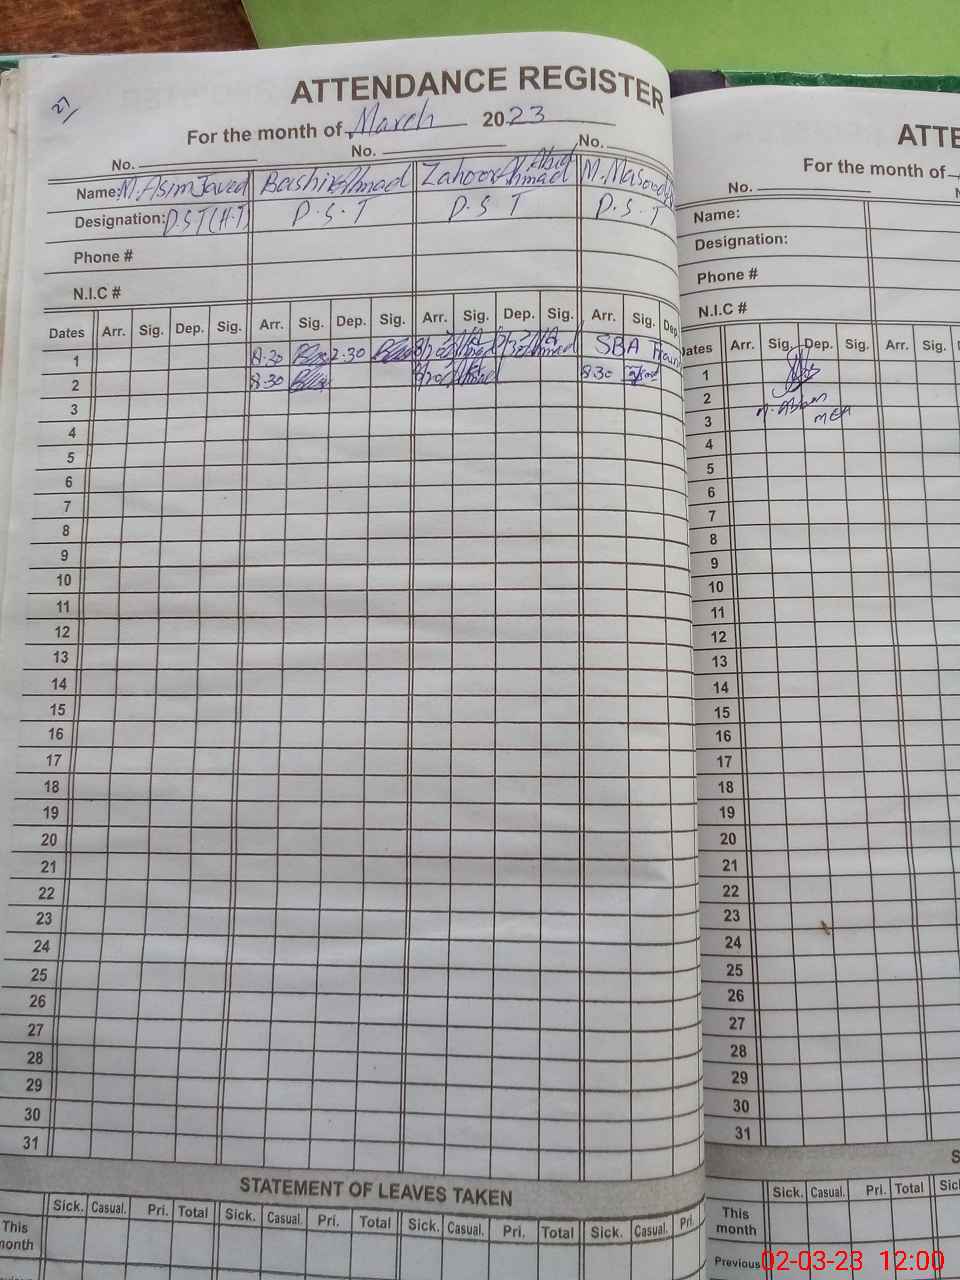 27/
ATTENDANCE REGISTER
For the month of March 2023
No. No. No.
Name: M. Asim Javed Bashir Ahmad Zahoor Ahmad Abid M. Masood
Designation: P.S.T (H.T) P.S.T P.S.T P.S.T
Phone #
N.I.C #
Dates Arr. Sig. Dep. Sig. Arr. Sig. Dep. Sig. Arr. Sig. Dep. Sig. Arr. Sig. Dep
1 8.30 2:30 SBA
2 8.30 8:30
3
4
5
6
7
8
9
10
11
12
13
14
15
16
17
18
19
20
21
22
23
24
25
26
27
28
29
30
31
STATEMENT OF LEAVES TAKEN
Sick. Casual. Pri. Total Sick. Casual. Pri. Total Sick. Casual. Pri. Total Sick. Casual. Pri.
This month
ATTE
For the month of
No.
Name:
Designation:
Phone #
N.I.C #
Dates Arr. Sig. Dep. Sig. Arr. Sig.
1
2
3 MEA
4
5
6
7
8
9
10
11
12
13
14
15
16
17
18
19
20
21
22
23
24
25
26
27
28
29
30
31
S
Sick. Casual. Pri. Total Sic
This month
Previous
02-03-23 12:00